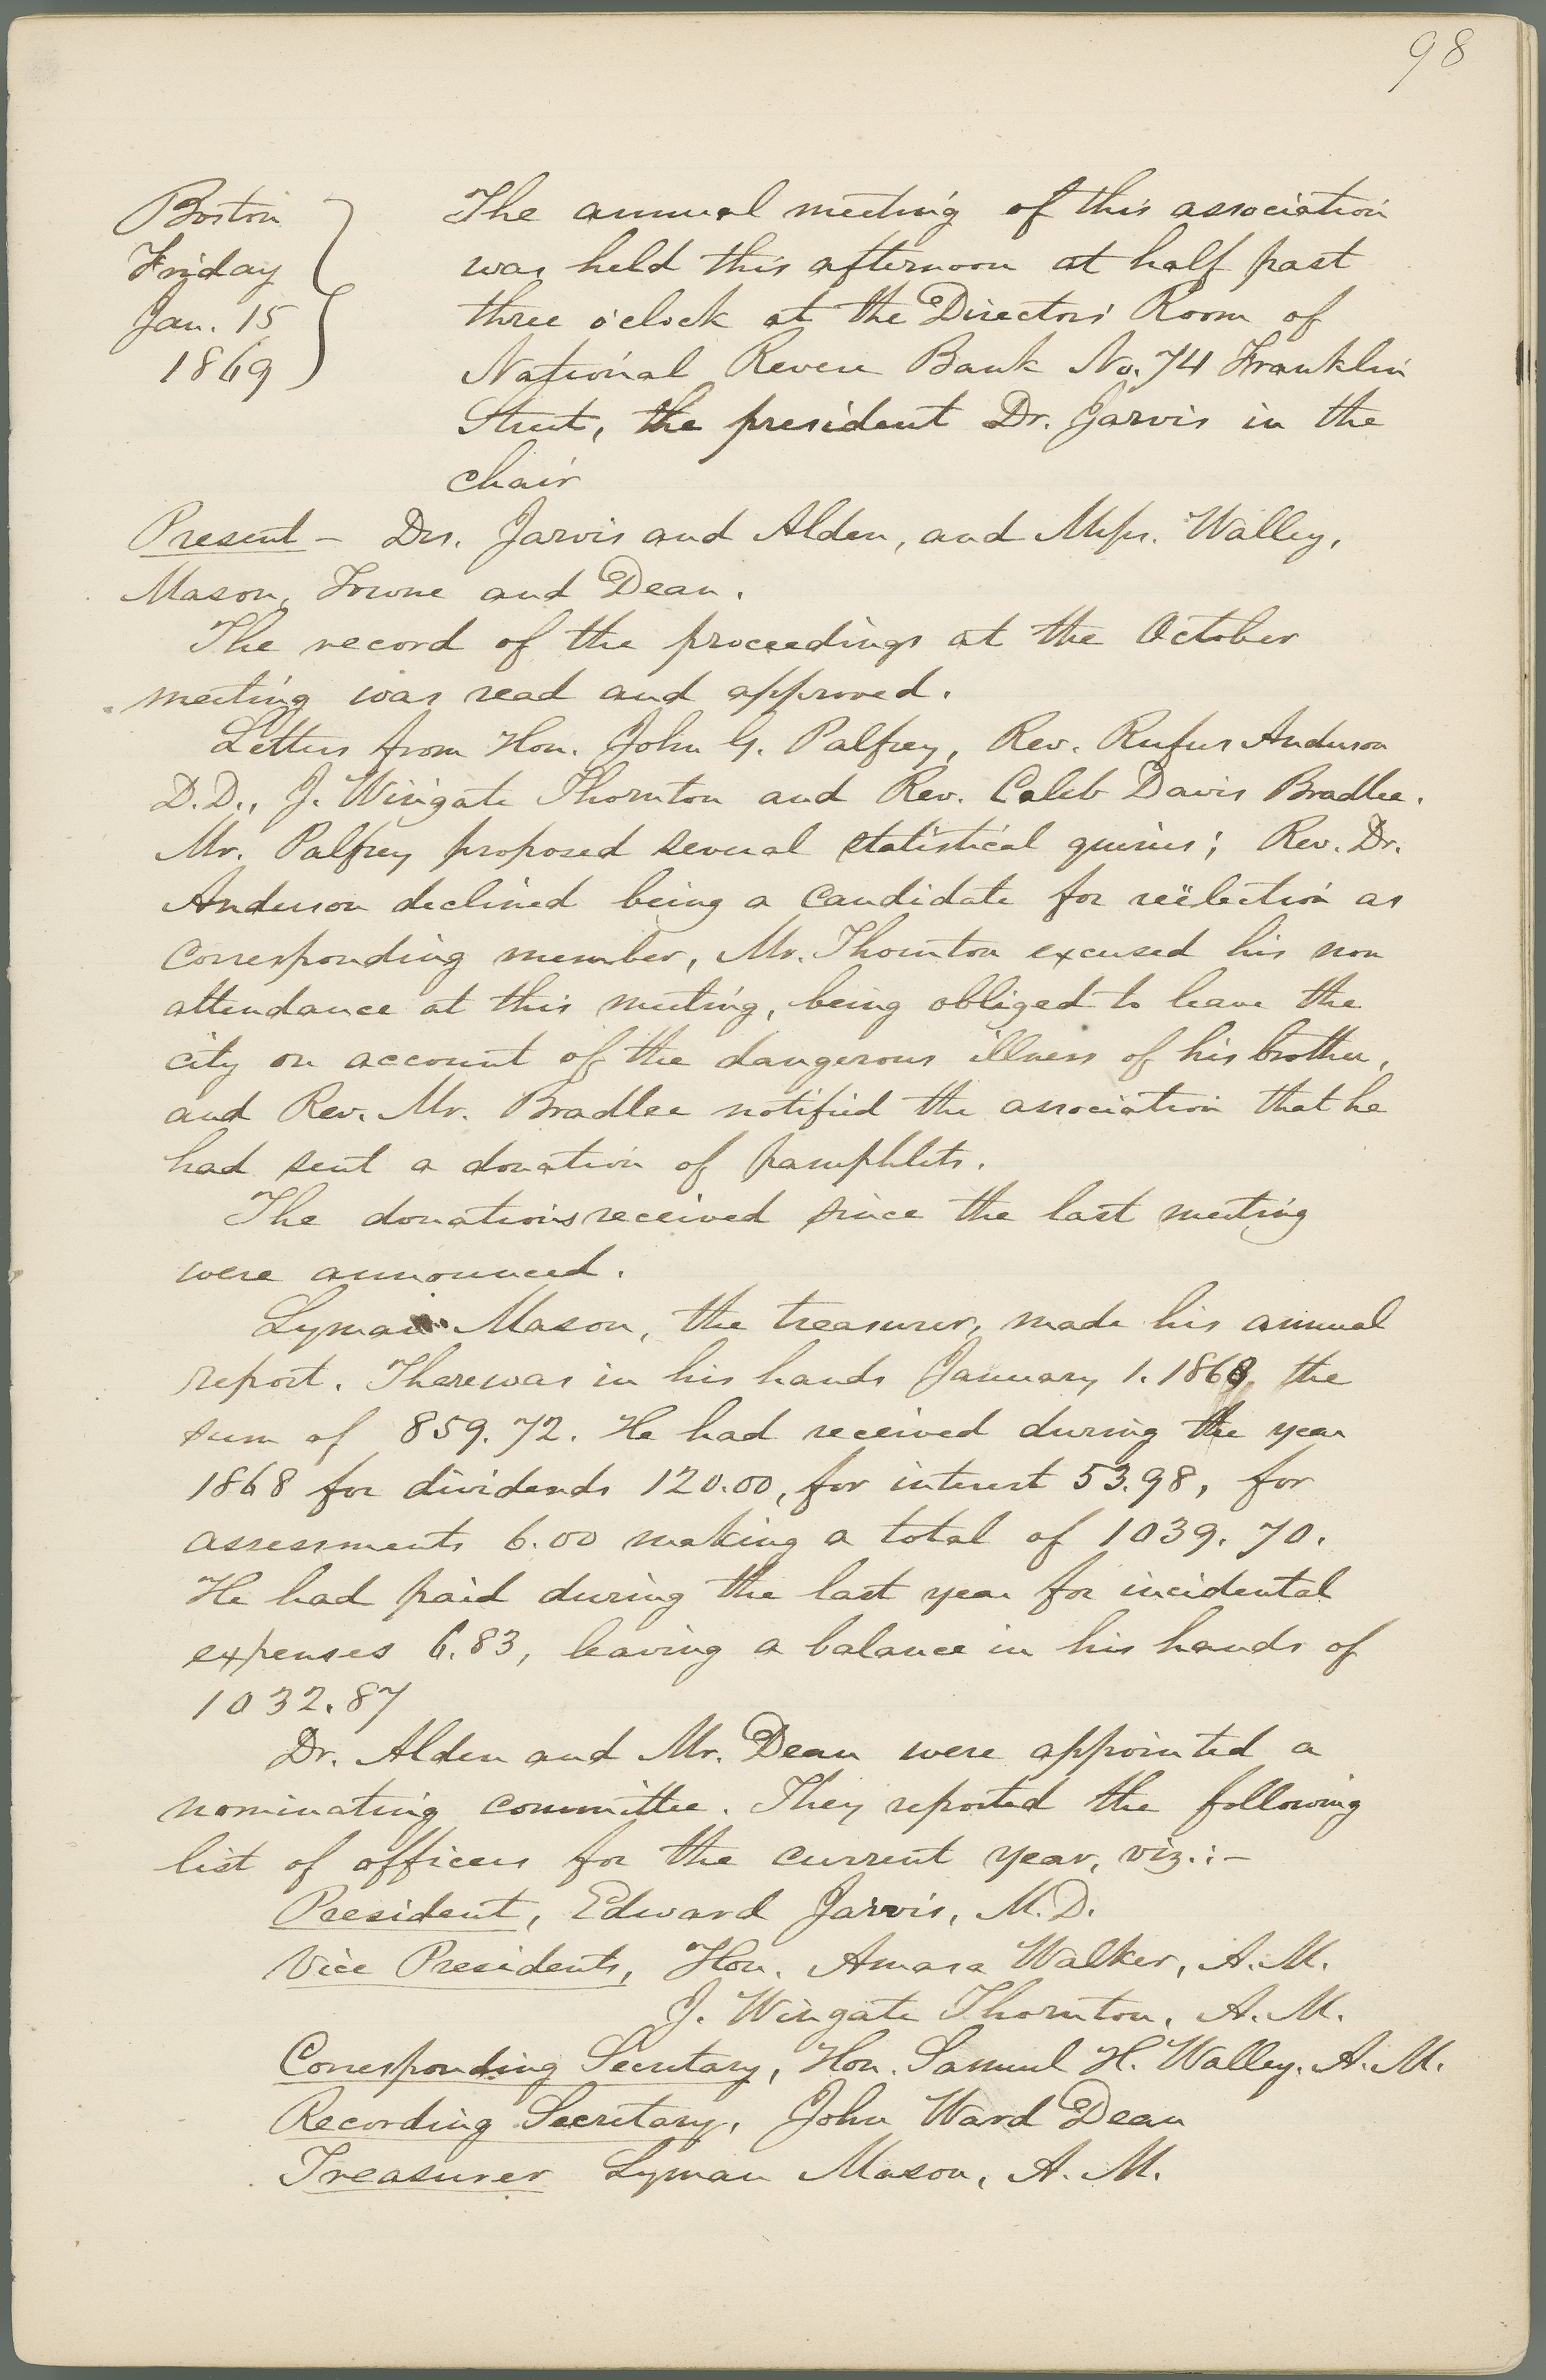 98
Boston
Friday
Jan. 15
1869
The annual meeting of this association
was held this afternoon at half past
three o'clock at the Directors' Room of
National Revere Bank No. 74 Franklin
Street, the president Dr. Jarvis in the
chair
Present - Drs. Jarvis and Alden, and Messrs. Walley,
Mason, Towne and Dean.
The record of the proceedings at the October
meeting was read and approved.
Letters from Hon. John G. Palfrey, Rev. Rufus Anderson
D.D., J. Wingate Thornton and Rev. Caleb Davis Bradlee.
Mr. Palfrey proposed several statistical queries; Rev. Dr.
Anderson declined being a candidate for reëlection as
corresponding member, Mr. Thornton excused his non
attendance at this meeting, being obliged to leave the
city on account of the dangerous illness of his brother,
and Rev. Mr. Bradlee notified the association that he
had sent a donation of pamphlets.
The donations received since the last meeting
were announced.
Lyman Mason, the treasurer, made his annual
report. There was in his hands January 1. 1868, the
sum of 859.72. He had received during the year
1868 for dividends 120.00, for interest 53.98, for
assessments 6.00 making a total of 1039.70.
He had paid during the last year for incidental
expenses 6.83, leaving a balance in his hands of
1032.87
Dr. Alden and Mr. Dean were appointed a
nominating committee. They reported the following
list of officers for the current year, viz.:-
President, Edward Jarvis, M.D.
Vice Presidents, Hon. Amasa Walker, A.M.
J. Wingate Thornton, A.M.
Corresponding Secretary, Hon. Samuel H. Walley, A.M.
Recording Secretary, John Ward Dean
Treasurer Lyman Mason, A.M.